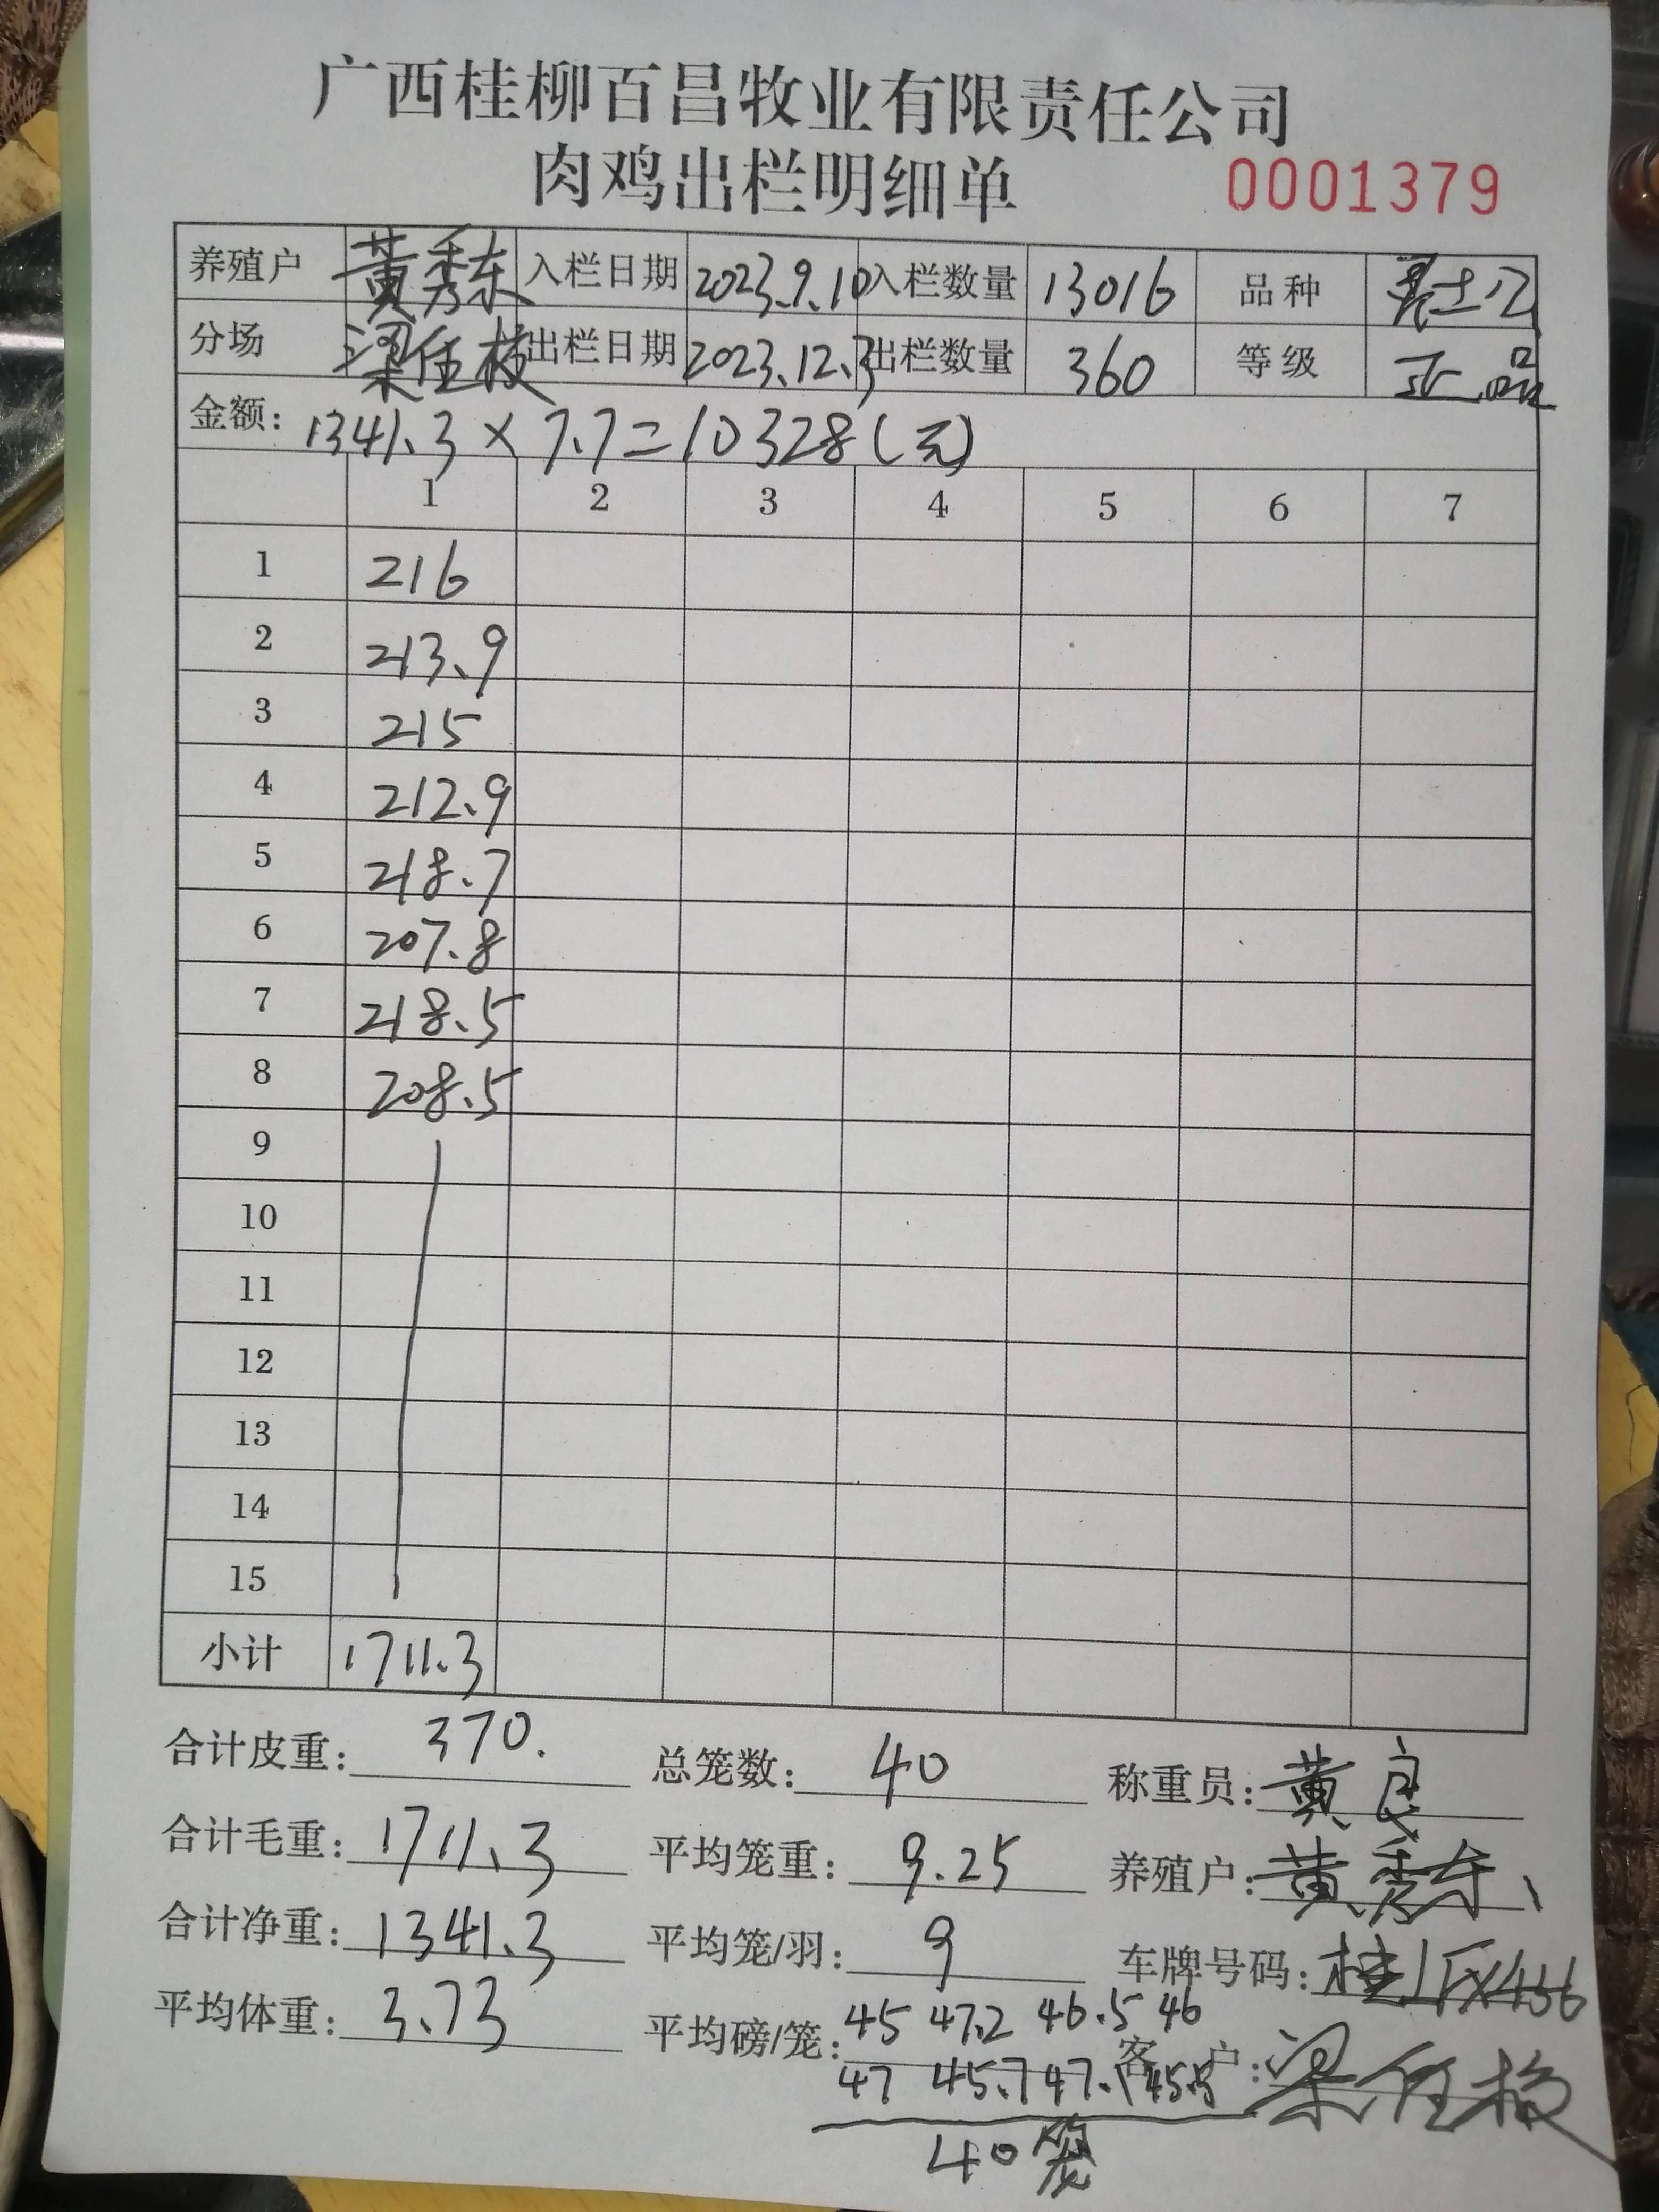 广西桂柳百昌牧业有限责任公司
肉鸡出栏明细单 0001379
养殖户 黄秀东 入栏日期 2023.9.10 入栏数量 13016 品种
分场 梁任枝 出栏日期 2023.12.3 出栏数量 360 等级 正品
金额: 1341.3×7.7=10328(元)
1 2 3 4 5 6 7
1 216
2 213.9
3 215
4 212.9
5 218.7
6 207.8
7 218.5
8 208.5
9
10
11
12
13
14
15
小计 1711.3
合计皮重: 370. 总笼数: 40 称重员: 黄良
合计毛重: 1711.3 平均笼重: 9.25 养殖户: 黄秀东
合计净重: 1341.3 平均笼/羽: 9 车牌号码: 桂
平均体重: 3.73 平均磅/笼: 45 47.2 46.5 46 客户: 梁任
47 45.7 47.1
40笼